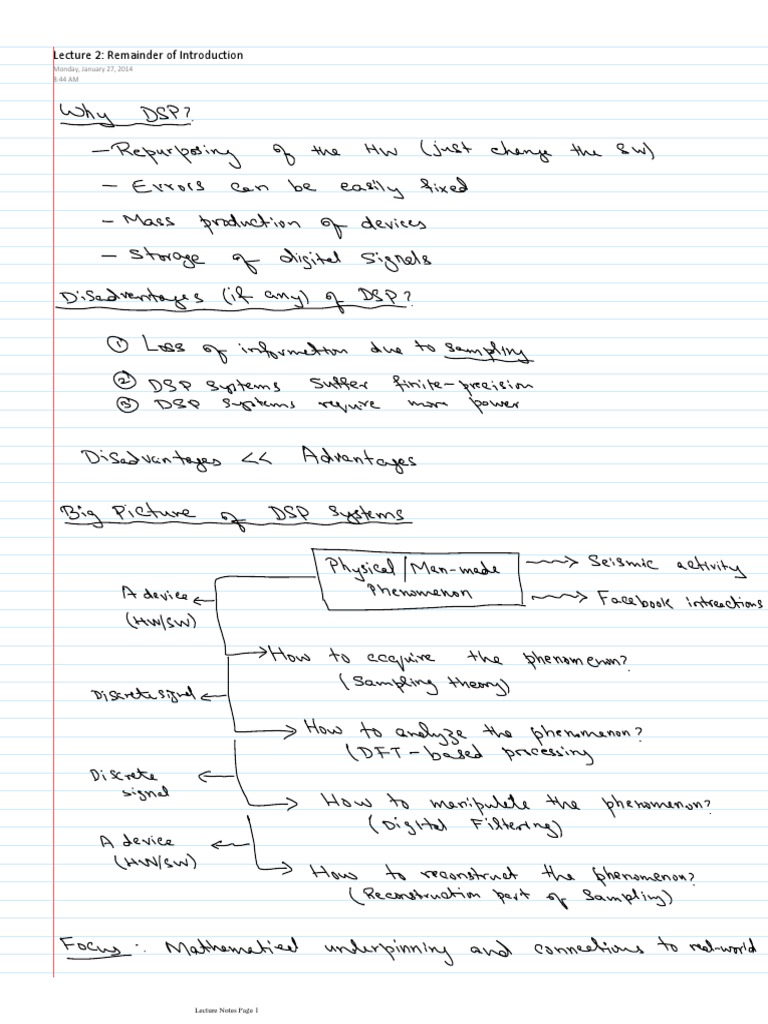 Lecture 2: Remainder of Introduction
Monday, January 27, 2014
8:44 AM
Why DSP?
– Repurposing of the HW (just change the SW)
– Errors can be easily fixed
– Mass production of devices
– Storage of digital signals
Disadvantages (if any) of DSP?
① Loss of information due to sampling
② DSP systems suffer finite-precision
③ DSP systems require more power
Disadvantages << Advantages
Big Picture of DSP systems
Physical/Man-made Phenomenon
Seismic activity
Facebook intreactions
A device
(HW/SW)
How to acquire the phenomenon?
(Sampling theory)
Discrete signal
How to analyze the phenomenon?
(DFT-based processing
Discrete
signal
How to manipulate the phenomenon?
(Digital Filtering)
A device
(HW/SW)
How to reconstruct the phenomenon?
(Reconstruction part of sampling)
Focus: Mathematical underpinning and connections to real-world
Lecture Notes Page 1